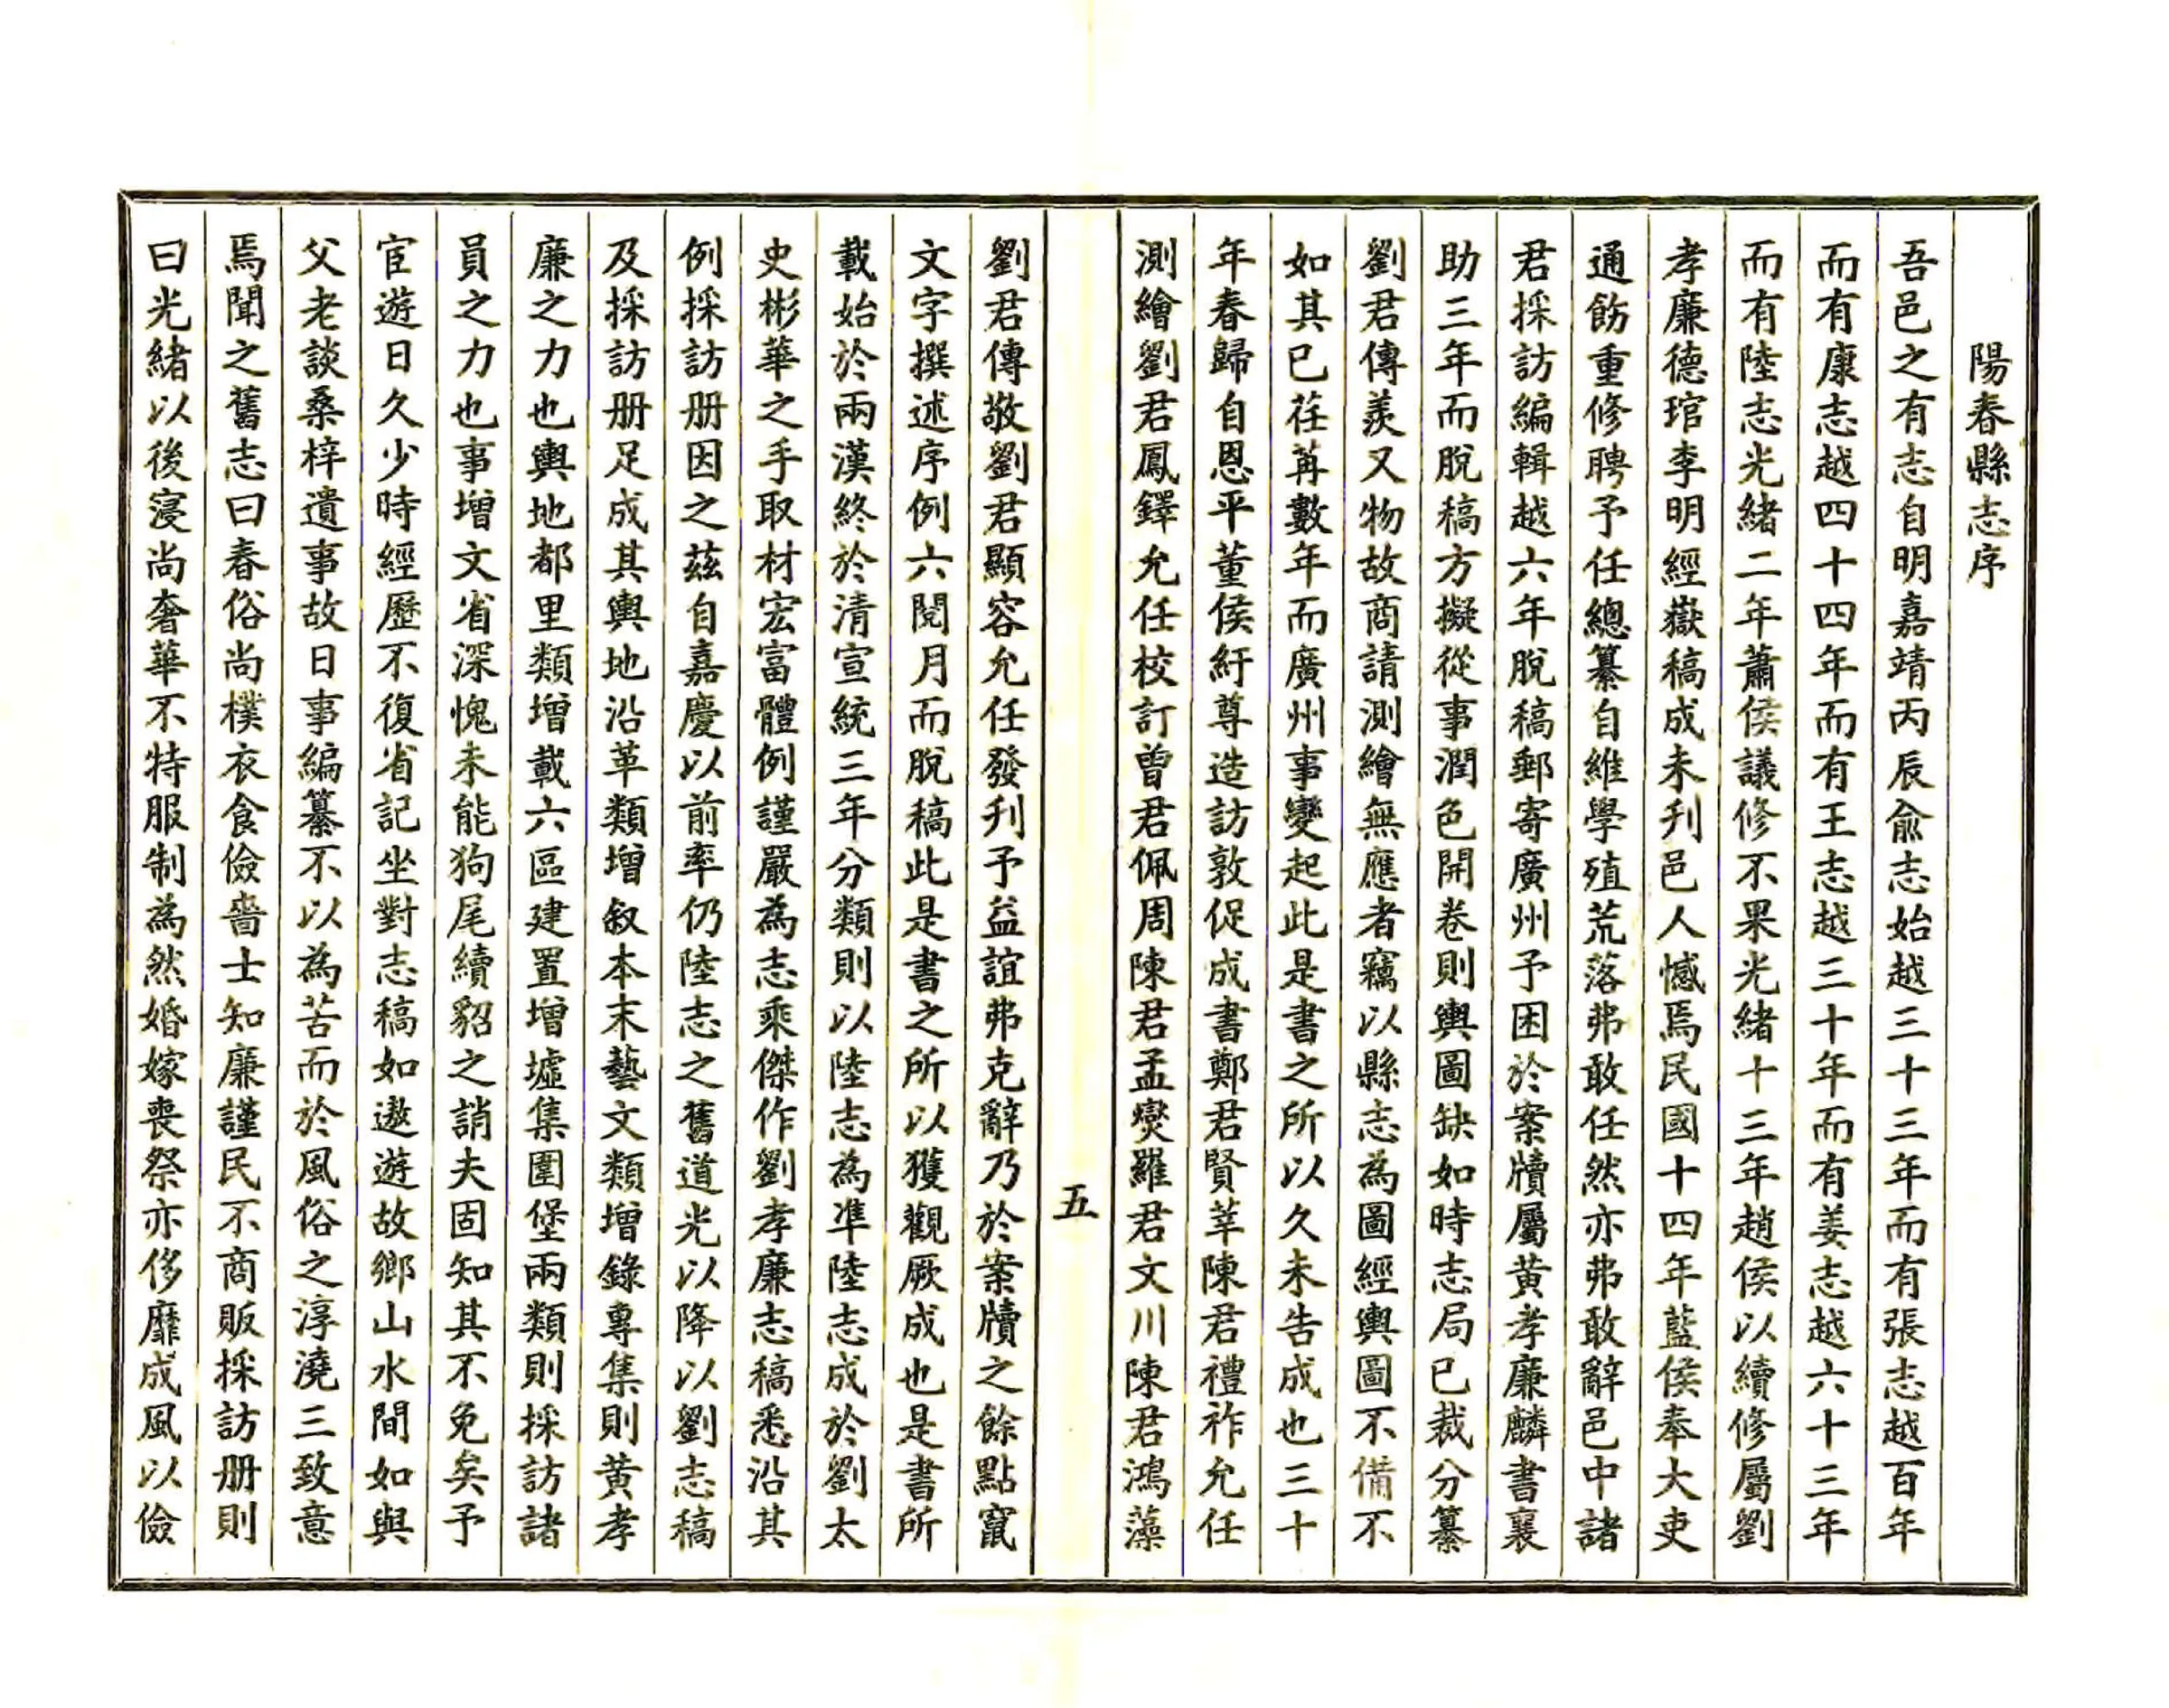 陽春縣志序
吾邑之有志自明嘉靖丙辰俞志始越三十三年而有張志越百年
而有康志越四十四年而有王志越三十年而有姜志越六十三年
而有陸志光緒二年蕭侯議修不果光緒十三年趙侯以續修屬劉
孝廉德琯李明經嶽稿成未刋邑人憾焉民國十四年藍侯奉大吏
通飭重修聘予任總纂自維學殖荒落弗敢任然亦弗敢辭邑中諸
君採訪編輯越六年脫稿郵寄廣州予困於案牘屬黃孝廉麟書襄
助三年而脫稿方擬從事潤色開卷則輿圖缺如時志局已裁分纂
劉君傳羨又物故商請測繪無應者竊以縣志為圖經輿圖不備不
如其已荏苒數年而廣州事變起此是書之所以久未告成也三十
年春歸自恩平董侯紆尊造訪敦促成書鄭君賢莘陳君禮祚允任
測繪劉君鳳鐸允任校訂曾君佩周陳君孟爕羅君文川陳君鴻藻
五
劉君傳敬劉君顯容允任發刋予益誼弗克辭乃於案牘之餘點竄
文字撰述序例六閱月而脫稿此是書之所以獲觀厥成也是書所
載始於兩漢終於清宣統三年分類則以陸志為準陸志成於劉太
史彬華之手取材宏富體例謹嚴為志乘傑作劉孝廉志稿悉沿其
例採訪册因之茲自嘉慶以前率仍陸志之舊道光以降以劉志稿
及採訪册足成其輿地沿革類增叙本末藝文類增錄專集則黃孝
廉之力也輿地都里類增載六區建置增墟集圍堡兩類則採訪諸
員之力也事增文省深愧未能狗尾續貂之誚夫固知其不免矣予
宦遊日久少時經歷不復省記坐對志稿如遨遊故鄉山水間如與
父老談桑梓遺事故日事編纂不以為苦而於風俗之淳澆三致意
焉聞之舊志曰春俗尚樸衣食儉嗇士知廉謹民不商販採訪册則
曰光緒以後寖尚奢華不特服制為然婚嫁喪祭亦侈靡成風以儉